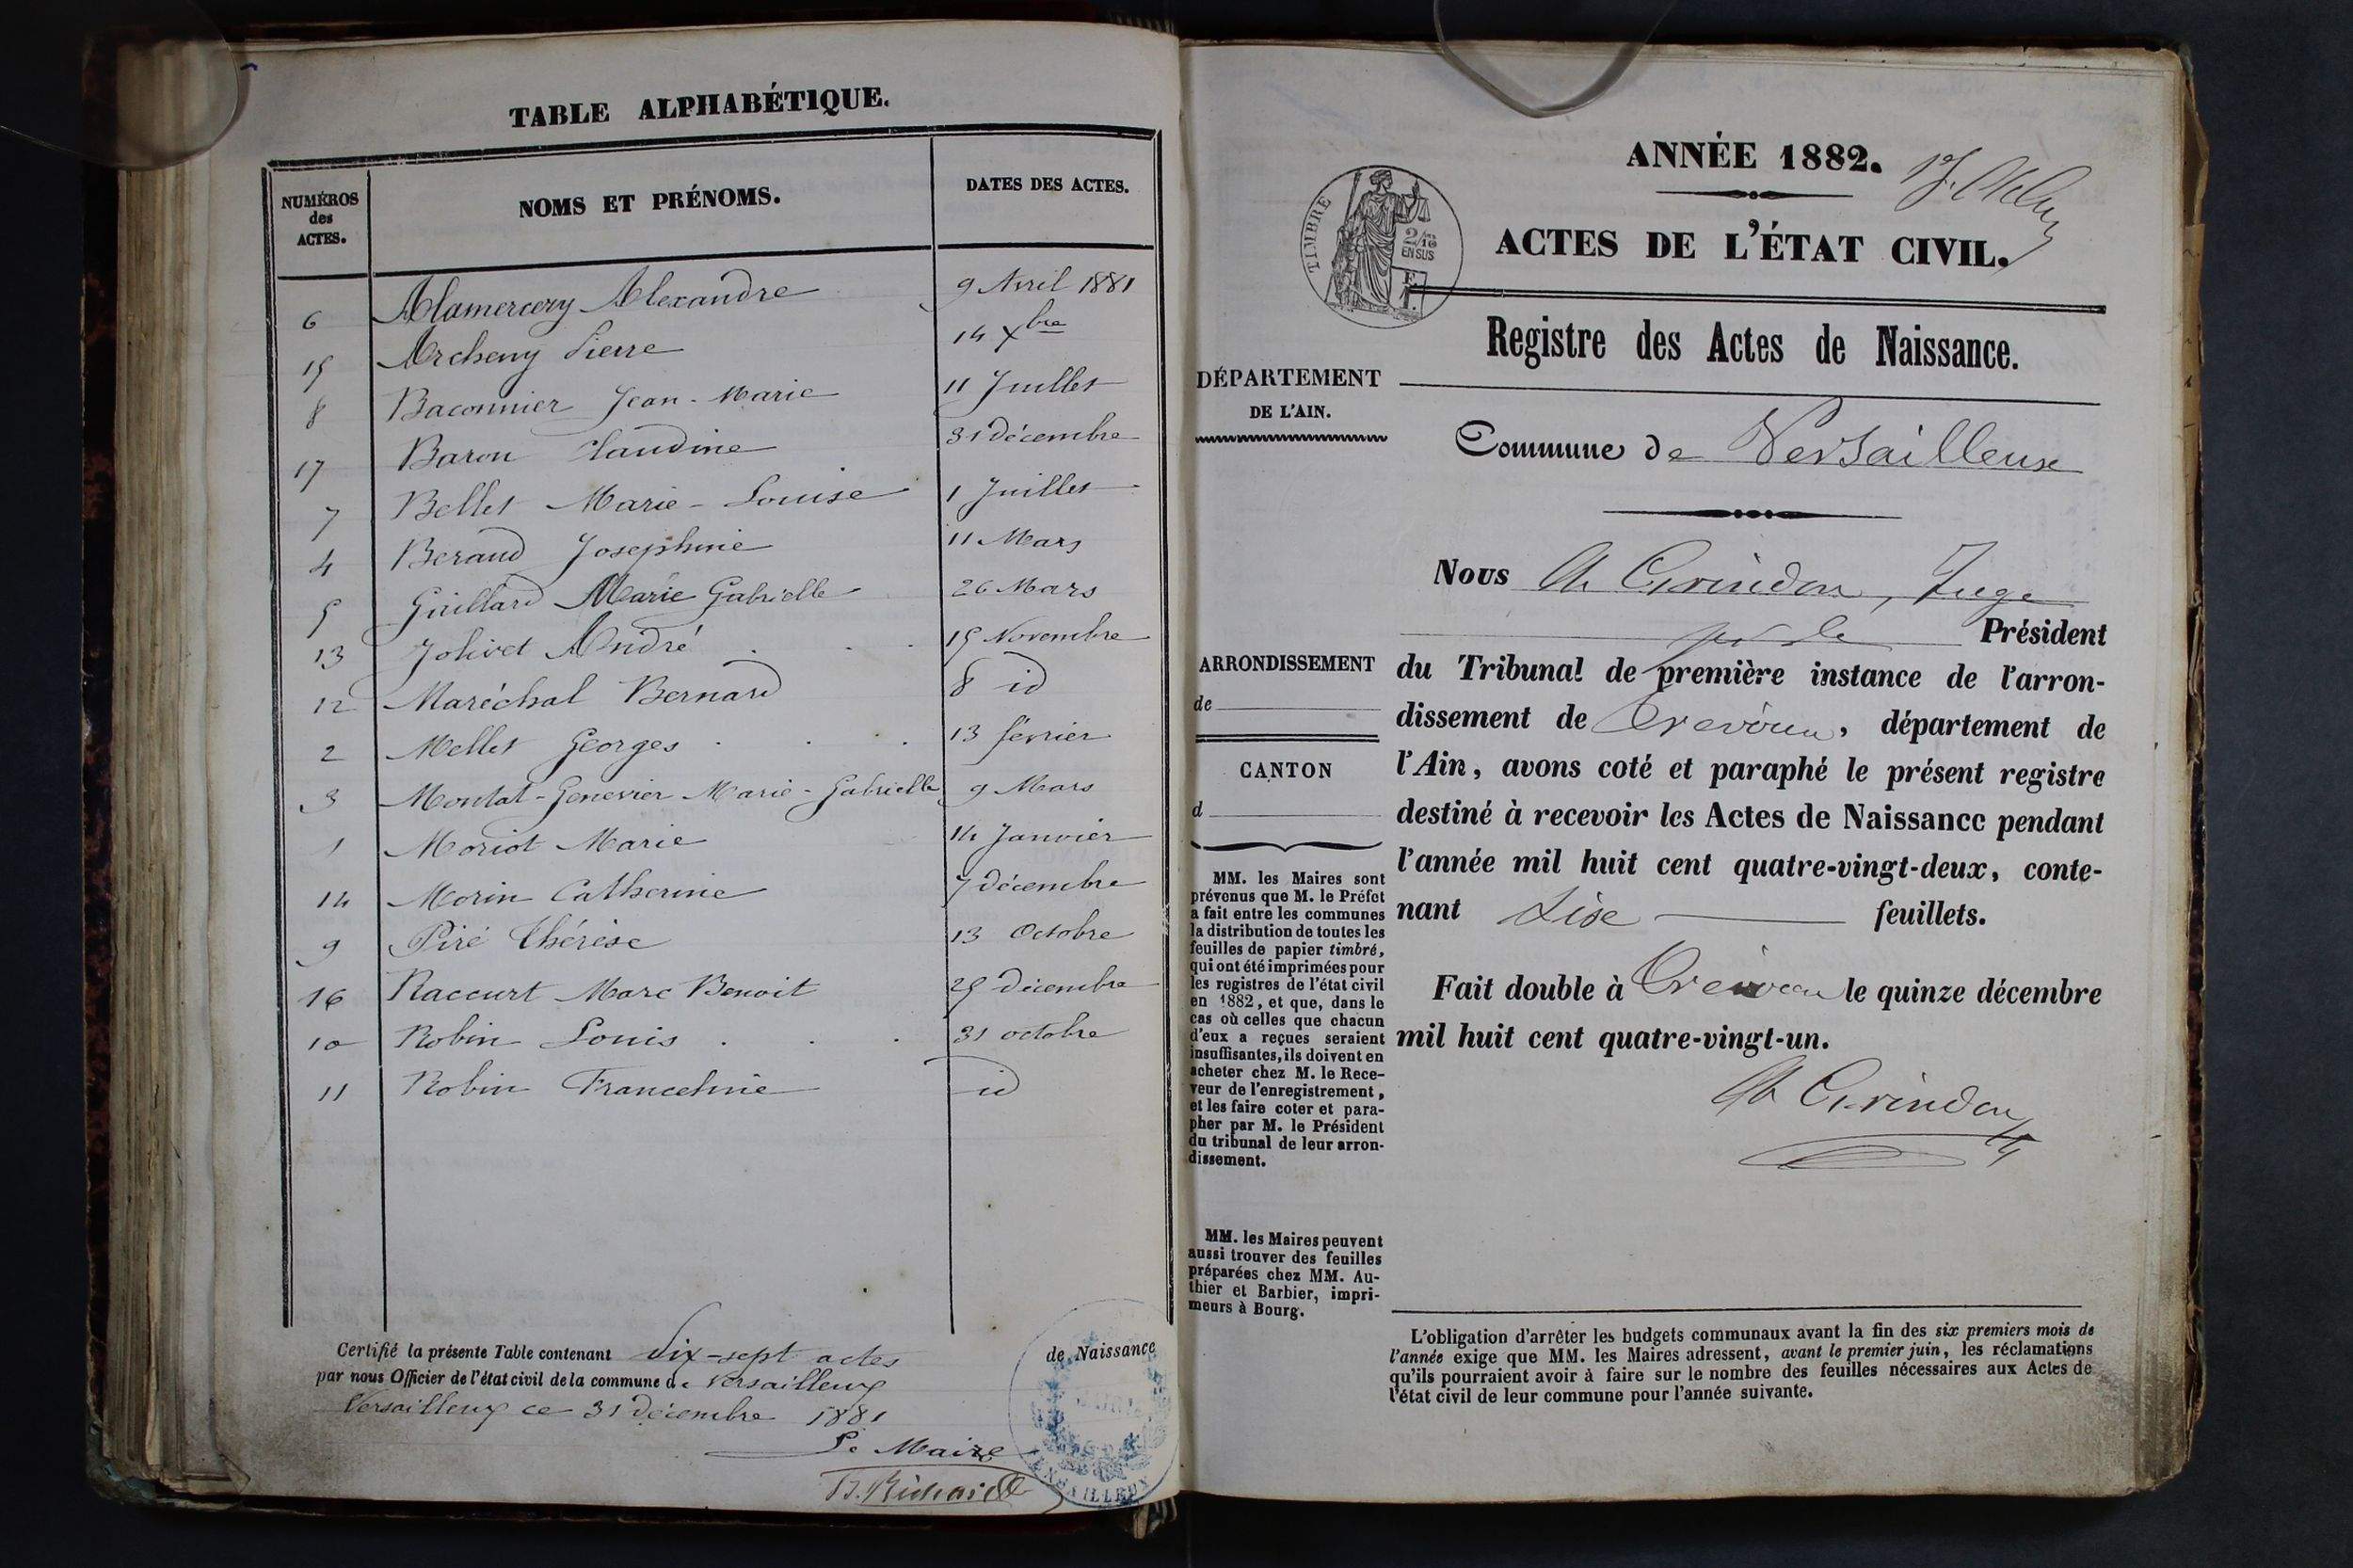 TABLE ALPHABÉTIQUE.
NUMÉROS des ACTES. NOMS ET PRÉNOMS. DATES DES ACTES.
6 Alamercery Alexandre 9 Avril 1881
15 Archeny Pierre 14 Xbre
8 Baconnier Jean-Marie 11 Juillet
17 Baron Claudine 31 décembre
7 Bellet Marie-Louise 1 Juillet
4 Beraud Josephine 11 Mars
5 Guillard Marie Gabrielle 26 Mars
13 Jolivet André 15 Novembre
12 Maréchal Bernard 8 id
2 Mellet Georges 13 février
3 Montat-Genevier Marie-Gabrielle 9 Mars
1 Moriot Marie 14 Janvier
14 Morin Catherine 7 décembre
9 Piré Thérèse 13 Octobre
16 Raccurt Marc Benoit 25 décembre
10 Robin Louis 31 octobre
11 Robin Franceline id
Certifié la présente Table contenant dix-sept actes de Naissance
par nous Officier de l'état civil de la commune de Versailleux
Versailleux ce 31 décembre 1881
Le Maire
B. Richard
ANNÉE 1882.
ACTES DE L'ÉTAT CIVIL.
TIMBRE
2/10 EN SUS
Registre des Actes de Naissance.
DÉPARTEMENT
DE L'AIN.
Commune de Versailleux
Nous Ch Grindon, Juge
pr le Président
ARRONDISSEMENT
de
CANTON
d
du Tribunal de première instance de l'arron-
dissement de Trévoux, département de
l'Ain, avons coté et paraphé le présent registre
destiné à recevoir les Actes de Naissance pendant
l'année mil huit cent quatre-vingt-deux, conte-
nant Six feuillets.
Fait double à Trévoux le quinze décembre
mil huit cent quatre-vingt-un.
Ch Grindon
MM. les Maires sont
prévenus que M. le Préfet
a fait entre les communes
la distribution de toutes les
feuilles de papier timbré,
qui ont été imprimées pour
les registres de l'état civil
en 1882, et que, dans le
cas où celles que chacun
d'eux a reçues seraient
insuffisantes, ils doivent en
acheter chez M. le Rece-
veur de l'enregistrement,
et les faire coter et para-
pher par M. le Président
du tribunal de leur arron-
dissement.
MM. les Maires peuvent
aussi trouver des feuilles
préparées chez MM. Au-
thier et Barbier, impri-
meurs à Bourg.
L'obligation d'arrêter les budgets communaux avant la fin des six premiers mois de
l'année exige que MM. les Maires adressent, avant le premier juin, les réclamations
qu'ils pourraient avoir à faire sur le nombre des feuilles nécessaires aux Actes de
l'état civil de leur commune pour l'année suivante.